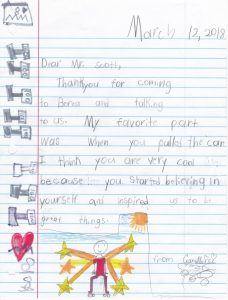 March 12, 2018
Dear Mr. Scott,
Thankyou for coming
to and talking
to us. My favorite part
was when you pulled the car.
I think you are very cool
because you started believing in
yourself and inspired us to be
great things.
from